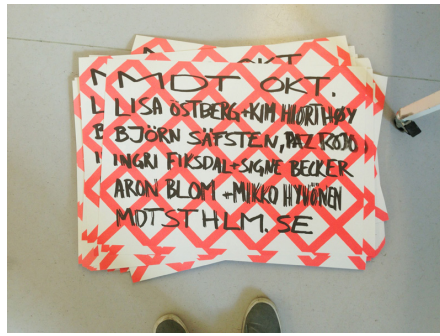 MDT OKT.
LISA ÖSTBERG + KIM HIORTHØY
BJÖRN SÄFSTEN, PAZ ROJO
INGRI FIKSDAL + SIGNE BECKER
ARON BLOM + MIKKO HYVÖNEN
MDTSTHLM.SE